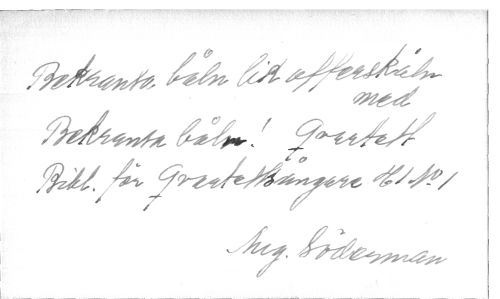 Bekransa båln lik offerskåln
med
Bekransa båln! Qvartett
Bibl. för Qvartettsångare H1 No 1
Aug. Söderman